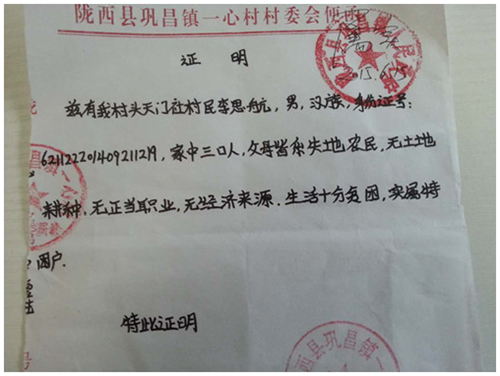 陇西县巩昌镇一心村村委会便函
证明
兹有我村头天门社村民李思航,男,汉族,身份证号:
62112220140921121X,家中三口人,父母皆系失地农民,无土地
耕种,无正当职业,无经济来源.生活十分贫困,实属特
困户.
特此证明
陇西县巩昌镇一